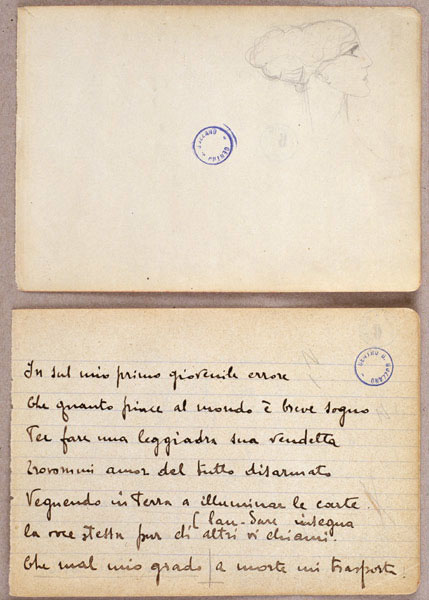 CENTRO
CENTRO
In sul mio primo giovenile errore
Che quanto piace al mondo è breve sogno
Per fare una leggiadra sua vendetta
Trovommi amor del tutto disarmato
Vegnendo in Terra a illuminar le carte
(lau-dare insegna
la voce stessa pur di altri vi chiami.
Che mal mio grado a morte mi trasporta.